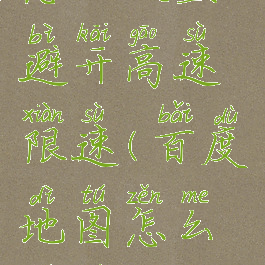 bì kāi gāo sù
避开高速
xiàn sù bǎi dù
限速(百度
dì tú zěn me
地图怎么